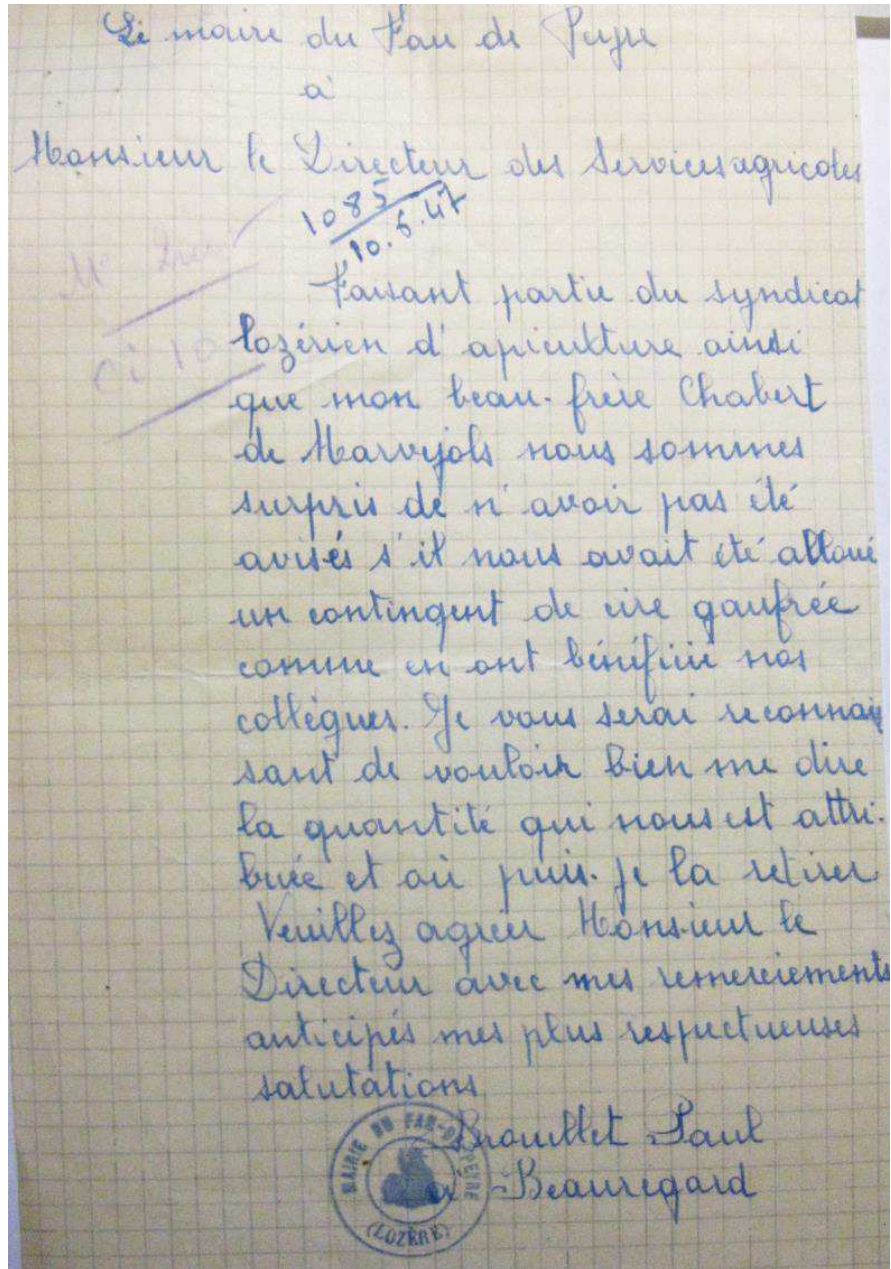 Le maire du Fau de Peyre
à
Monsieur le Directeur des Services agricoles
1085
10.6.47
Mr
ci 10
Faisant partie du syndicat
lozérien d'apiculture ainsi
que mon beau-frère Chabert
de Marvejols nous sommes
surpris de n'avoir pas été
avisés s'il nous avait été alloué
un contingent de cire gaufrée
comme en ont bénéficié nos
collègues. Je vous serai reconnais
sant de vouloir bien me dire
la quantité qui nous est attri-
buée et où puis-je la retirer
Veuillez agréer Monsieur le
Directeur avec mes remerciements
anticipés mes plus respectueuses
salutations
Brouillet Paul
à Beauregard
MAIRIE DU FAU-DE-PEYRE
(LOZÈRE)